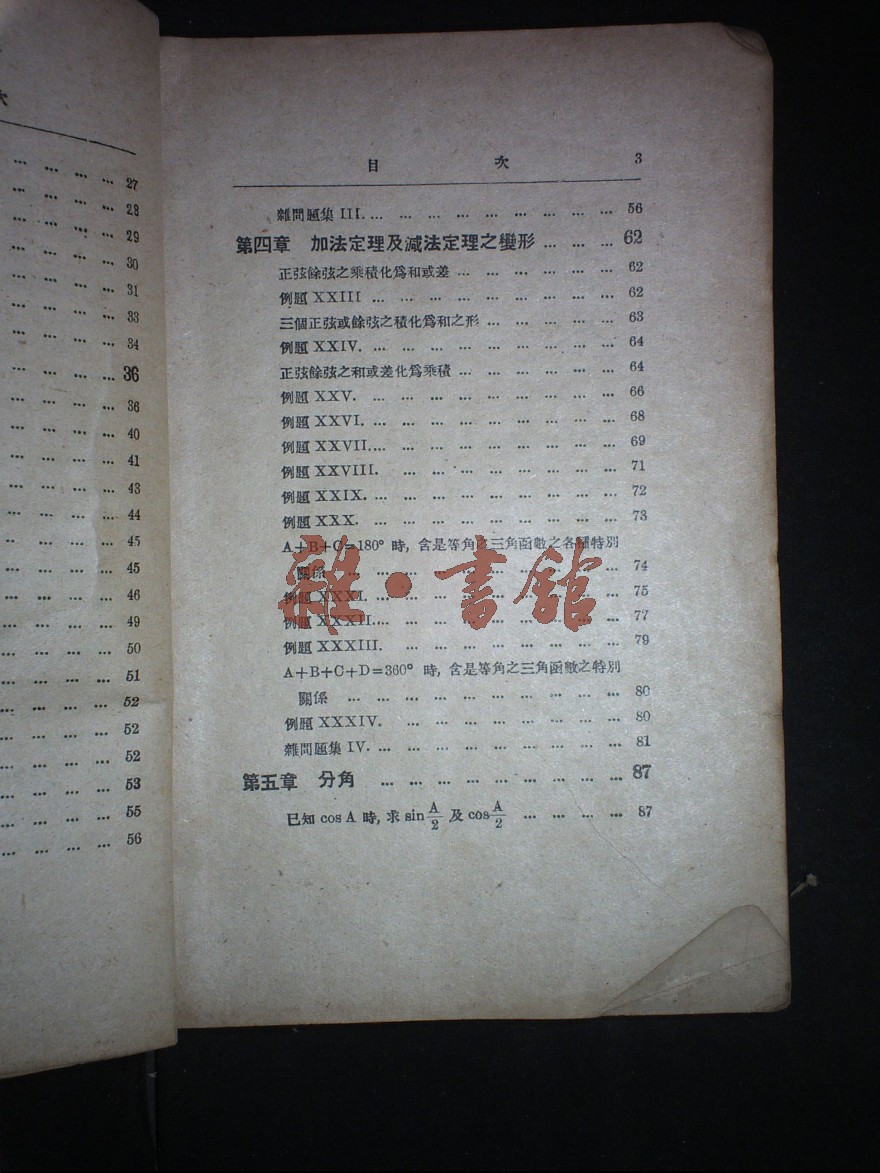 次
… … … … 27
… … … … 28
… … … … 29
… … … … 30
… … … … 31
… … … … 33
… … … … 34
… … … … 36
… … … … 36
… … … … 40
… … … … 41
… … … … 43
… … … … 44
… … … … 45
… … … … 45
… … … … 46
… … … … 49
… … … … 50
… … … … 51
… … … … 52
… … … … 52
… … … … 52
… … … … 53
… … … … 55
… … … … 56
目 次 3
雜問題集 III. … … … … … … … … … 56
第四章 加法定理及減法定理之變形 … … … 62
正弦餘弦之乘積化爲和或差 … … … … … … 62
例題 XXIII … … … … … … … … … 62
三個正弦或餘弦之積化爲和之形 … … … … … 63
例題 XXIV. … … … … … … … … … 64
正弦餘弦之和或差化爲乘積 … … … … … … 64
例題 XXV. … … … … … … … … … 66
例題 XXVI. … … … … … … … … … 68
例題 XXVII. … … … … … … … … … 69
例題 XXVIII. … … … … … … … … 71
例題 XXIX. … … … … … … … … … 72
例題 XXX. … … … … … … … … … 73
A+B+C=180° 時, 含是等角之三角函數之各種特別
關係 … … … … … … … … … … 74
例題 XXXI. … … … … … … … … … 75
例題 XXXII. … … … … … … … … … 77
例題 XXXIII. … … … … … … … … 79
A+B+C+D=360° 時, 含是等角之三角函數之特別
關係 … … … … … … … … … … 80
例題 XXXIV. … … … … … … … … 80
雜問題集 IV. … … … … … … … … … 81
第五章 分角 … … … … … … … … … 87
已知 cos A 時, 求 sin A/2 及 cos A/2 … … … … 87
雜·書館